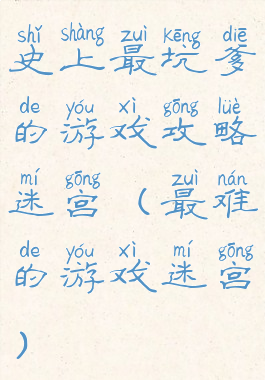 shǐ shàng zuì kēng diē
史上最坑爹
de yóu xì gōng lüè
的游戏攻略
mí gōng zuì nán
迷宫（最难
de yóu xì mí gōng
的游戏迷宫
）